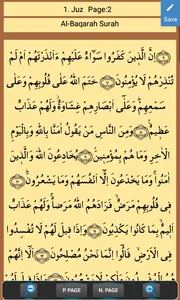 1. Juz Page:2
Save
Al-Baqarah Surah
اِنَّ الَّذٖينَ كَفَرُوا سَوَٓاءٌ عَلَيْهِمْ ءَاَنْذَرْتَهُمْ اَمْ لَمْ
تُنْذِرْهُمْ لَا يُؤْمِنُونَ ﴿٦﴾ خَتَمَ اللّٰهُ عَلٰى قُلُوبِهِمْ وَعَلٰى
سَمْعِهِمْ وَعَلٰٓى اَبْصَارِهِمْ غِشَاوَةٌ وَلَهُمْ عَذَابٌ
عَظٖيمٌ ﴿٧﴾ وَمِنَ النَّاسِ مَنْ يَقُولُ اٰمَنَّا بِاللّٰهِ وَبِالْيَوْمِ
الْاٰخِرِ وَمَا هُمْ بِمُؤْمِنٖينَ ﴿٨﴾ يُخَادِعُونَ اللّٰهَ وَالَّذٖينَ
اٰمَنُوا وَمَا يَخْدَعُونَ اِلَّٓا اَنْفُسَهُمْ وَمَا يَشْعُرُونَ ﴿٩﴾
فٖي قُلُوبِهِمْ مَرَضٌ فَزَادَهُمُ اللّٰهُ مَرَضًا وَلَهُمْ عَذَابٌ
اَلٖيمٌ بِمَا كَانُوا يَكْذِبُونَ ﴿١٠﴾ وَاِذَا قٖيلَ لَهُمْ لَا تُفْسِدُوا
فِي الْاَرْضِ قَالُٓوا اِنَّمَا نَحْنُ مُصْلِحُونَ ﴿١١﴾ اَلَٓا اِنَّهُمْ
P.PAGE
N. PAGE